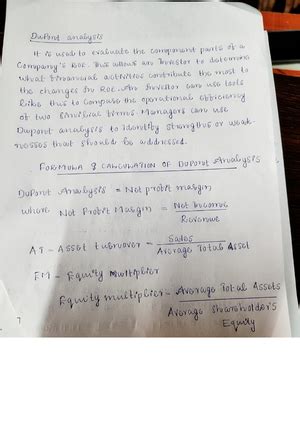 DuPont analysis
It is used to evaluate the component parts of a
Company's ROE. This allows an investor to determine
what financial activities contribute the most to
the changes in ROE. An investor can use tools
like this to compare the operational efficiency
of two similar firms Managers can use
Dupont analysis to identify strengths or weak-
nesses that should be addressed.
FORMULA & CALCULATION OF DUPONT Analysis
DuPont Analysis = Net profit margin
where Net Profit Margin = Net Income
Revenue
AT - Asset turnover = Sales
Average Total Asset
EM - Equity Multiplier
Equity multiplier = Average Total Assets
Average Shareholder's
Equity
7